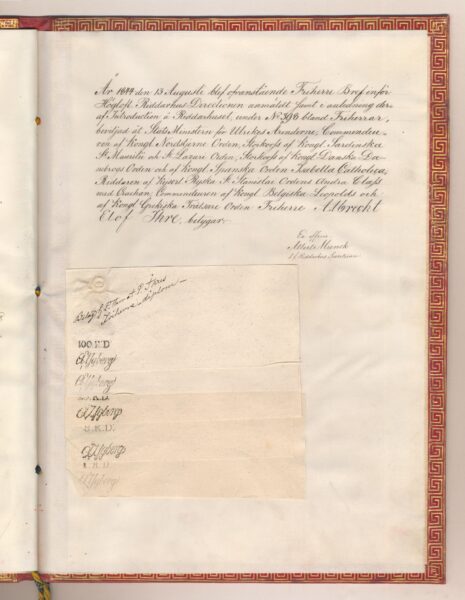 År 1844 den 13 Augusti blef ofvanstående Friherre Bref inför
Höglofl. Riddarhus-Directionen anmäldt samt i anledning der-
af Introduction å Riddarhuset, under No 398 bland Friherrar,
beviljad åt Stats Ministern för Utrikes Ärenderne, Commendeu-
ren af Kongl Nordstjerne Orden, Storkorset af Kongl Sardinska
St Mauritii och St Lazari Orden, Storkorset af Kongl Danska Da-
nebrogs Orden och af Kongl Spanska Orden Isabella Catholica,
Riddaren af Kejserl Ryska St Stanislai Ordens Andra Class
med Crachan, Commendeuren af Kongl Belgiska Leopolds och
af Kongl Grekiska Frälsare Orden Friherre Albrecht
Elof Ihre, betygar
Ex officio
Riddarhus
100 R D
Nyberg
Nyberg
Nyberg
8. K. D.
Nyberg
Nyberg